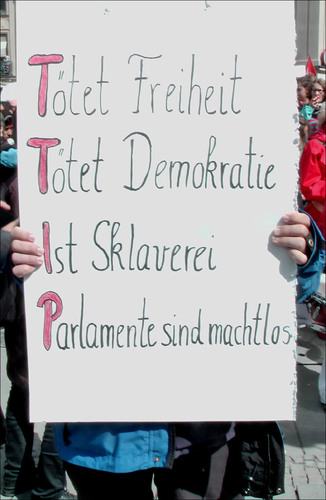 Tötet Freiheit
Tötet Demokratie
Ist Sklaverei
Parlamente sind machtlos